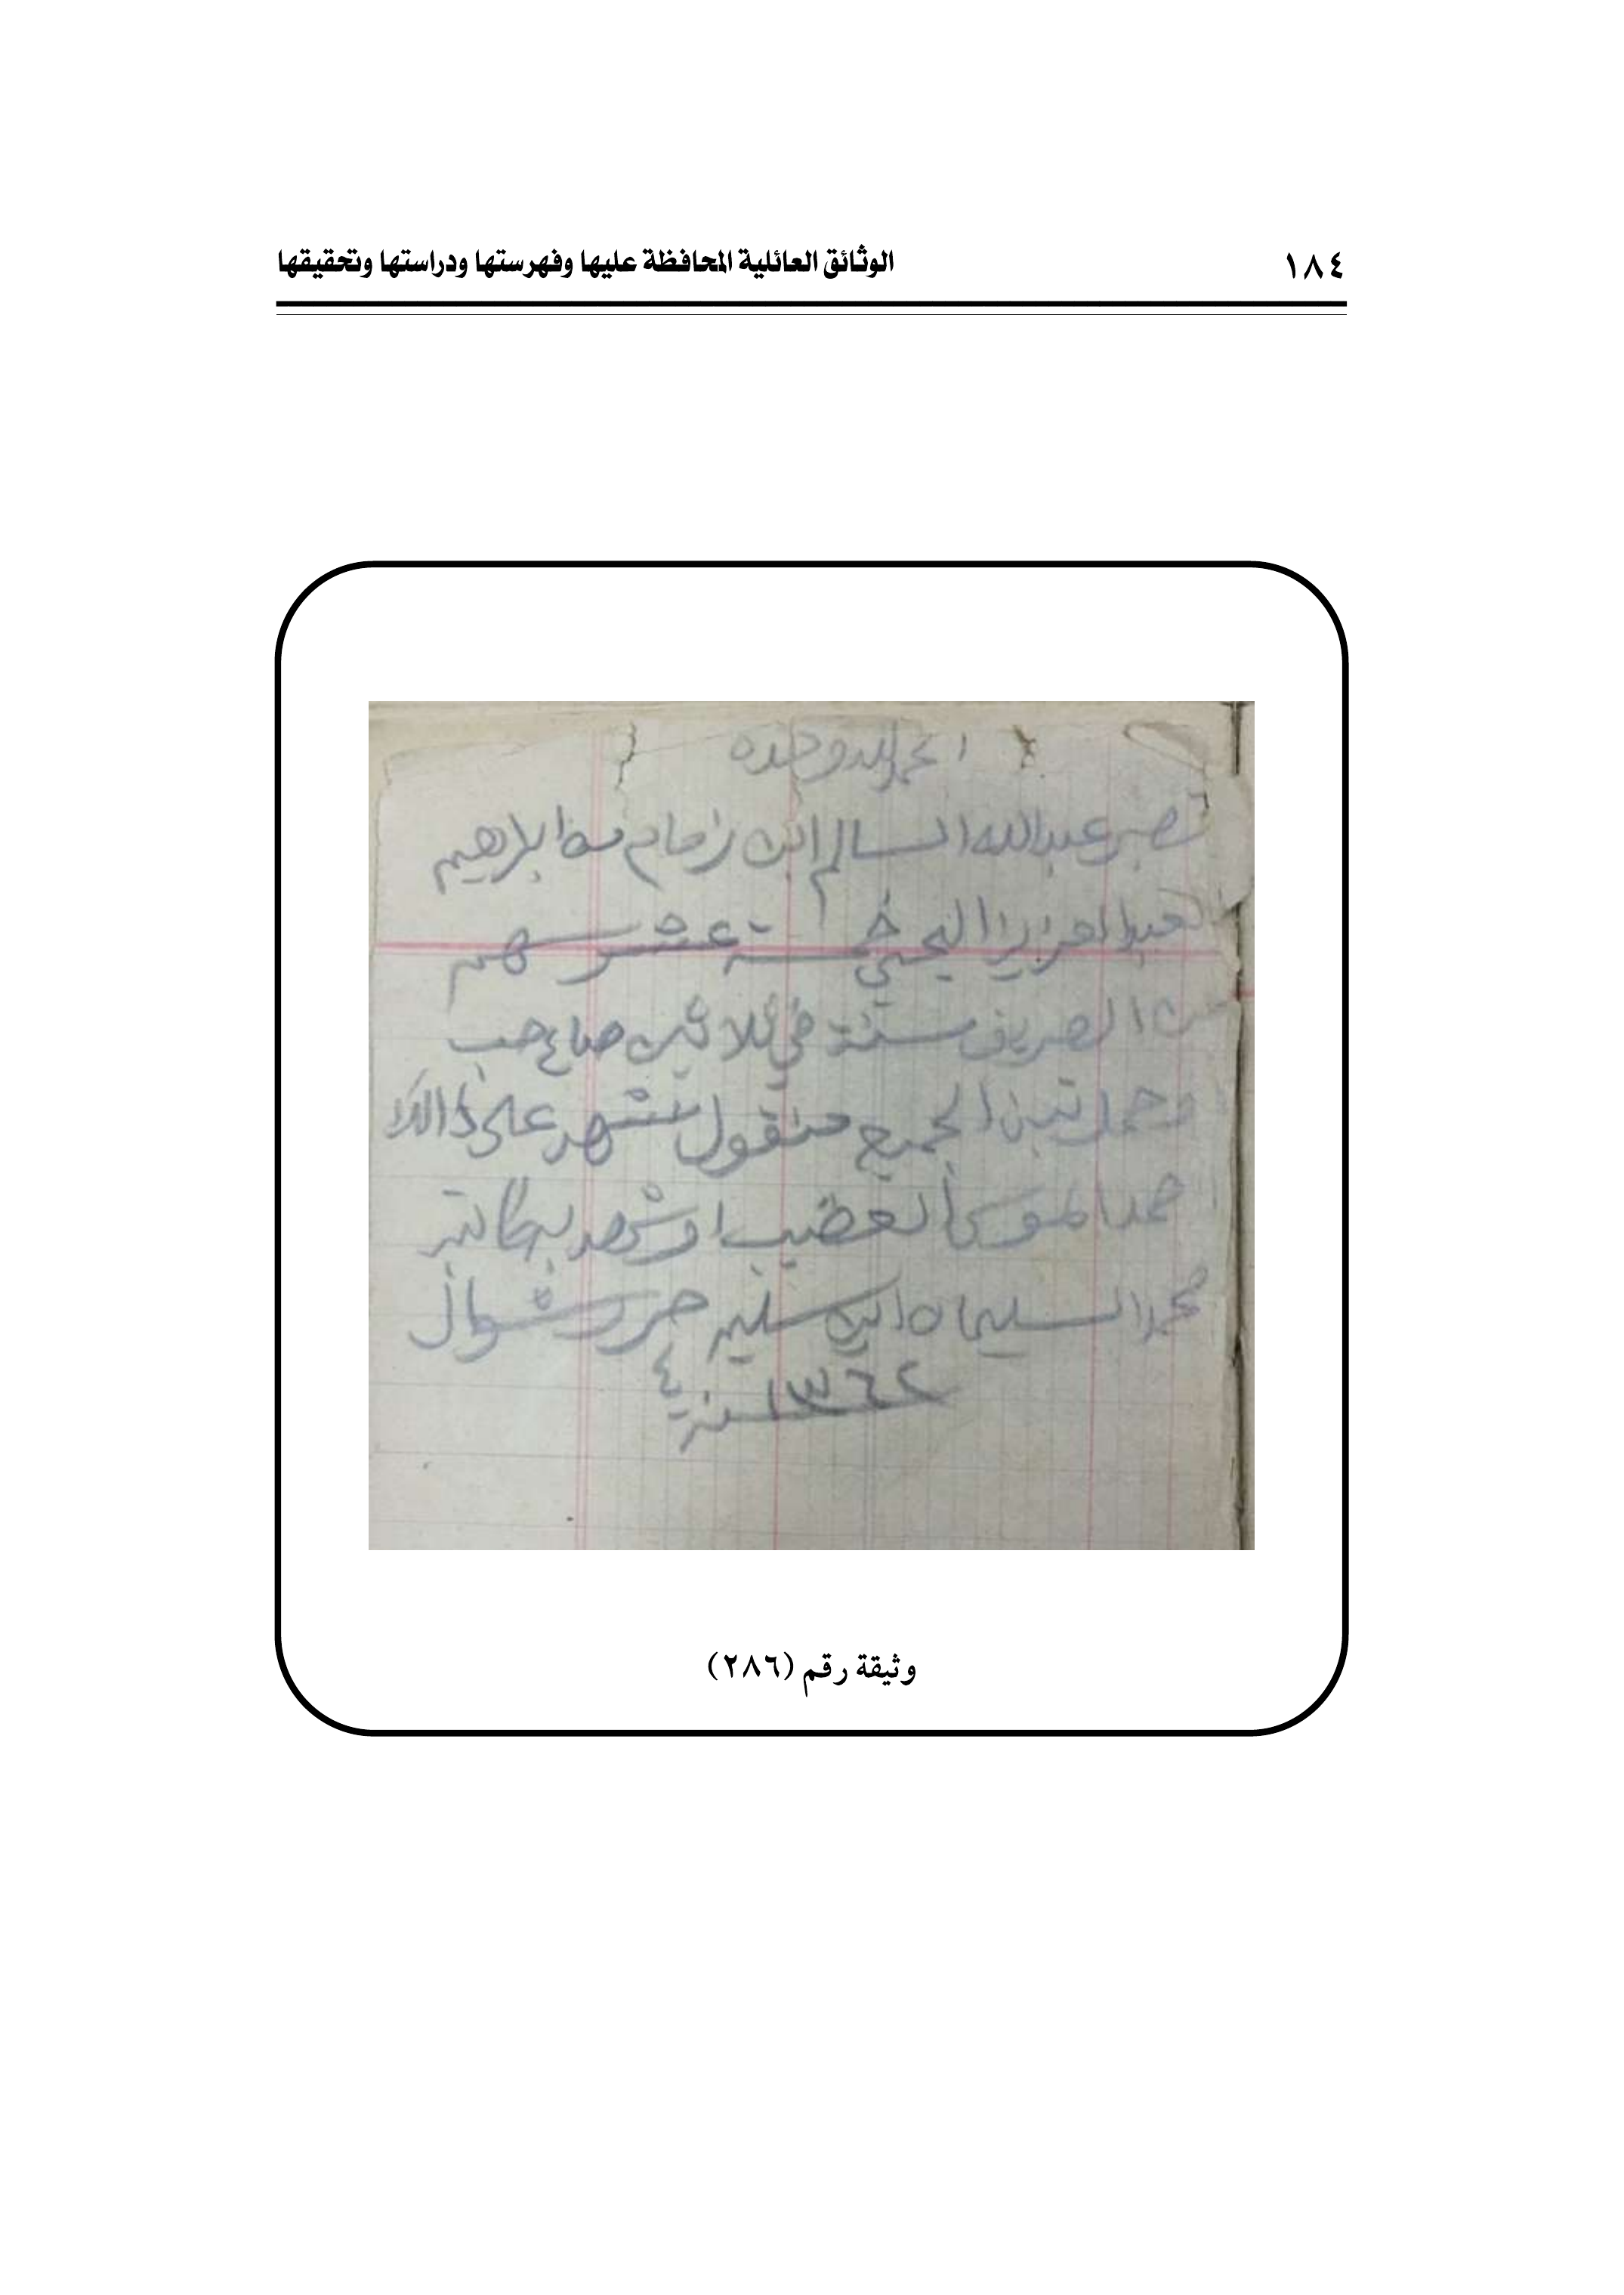 ١٨٤
الوثائق العائلية المحافظة عليها وفهرستها ودراستها وتحقيقها
الحمد لله وحده
تصبر عبدالله السالم ابن زمام من ابراهيم
لعبدالعزيز اليحيى خمسة عشر سهم
من الصريف سنة في ثلاثين صاع حب
وحمل تبن الجميع منقول شهد على ذالك
حمد الموسى العضيب اوشهد به كاتبه
محمد السليمان ابن سليم حرر شوال
٤
سنة ١٣٦٢
وثيقة رقم (٢٨٦)